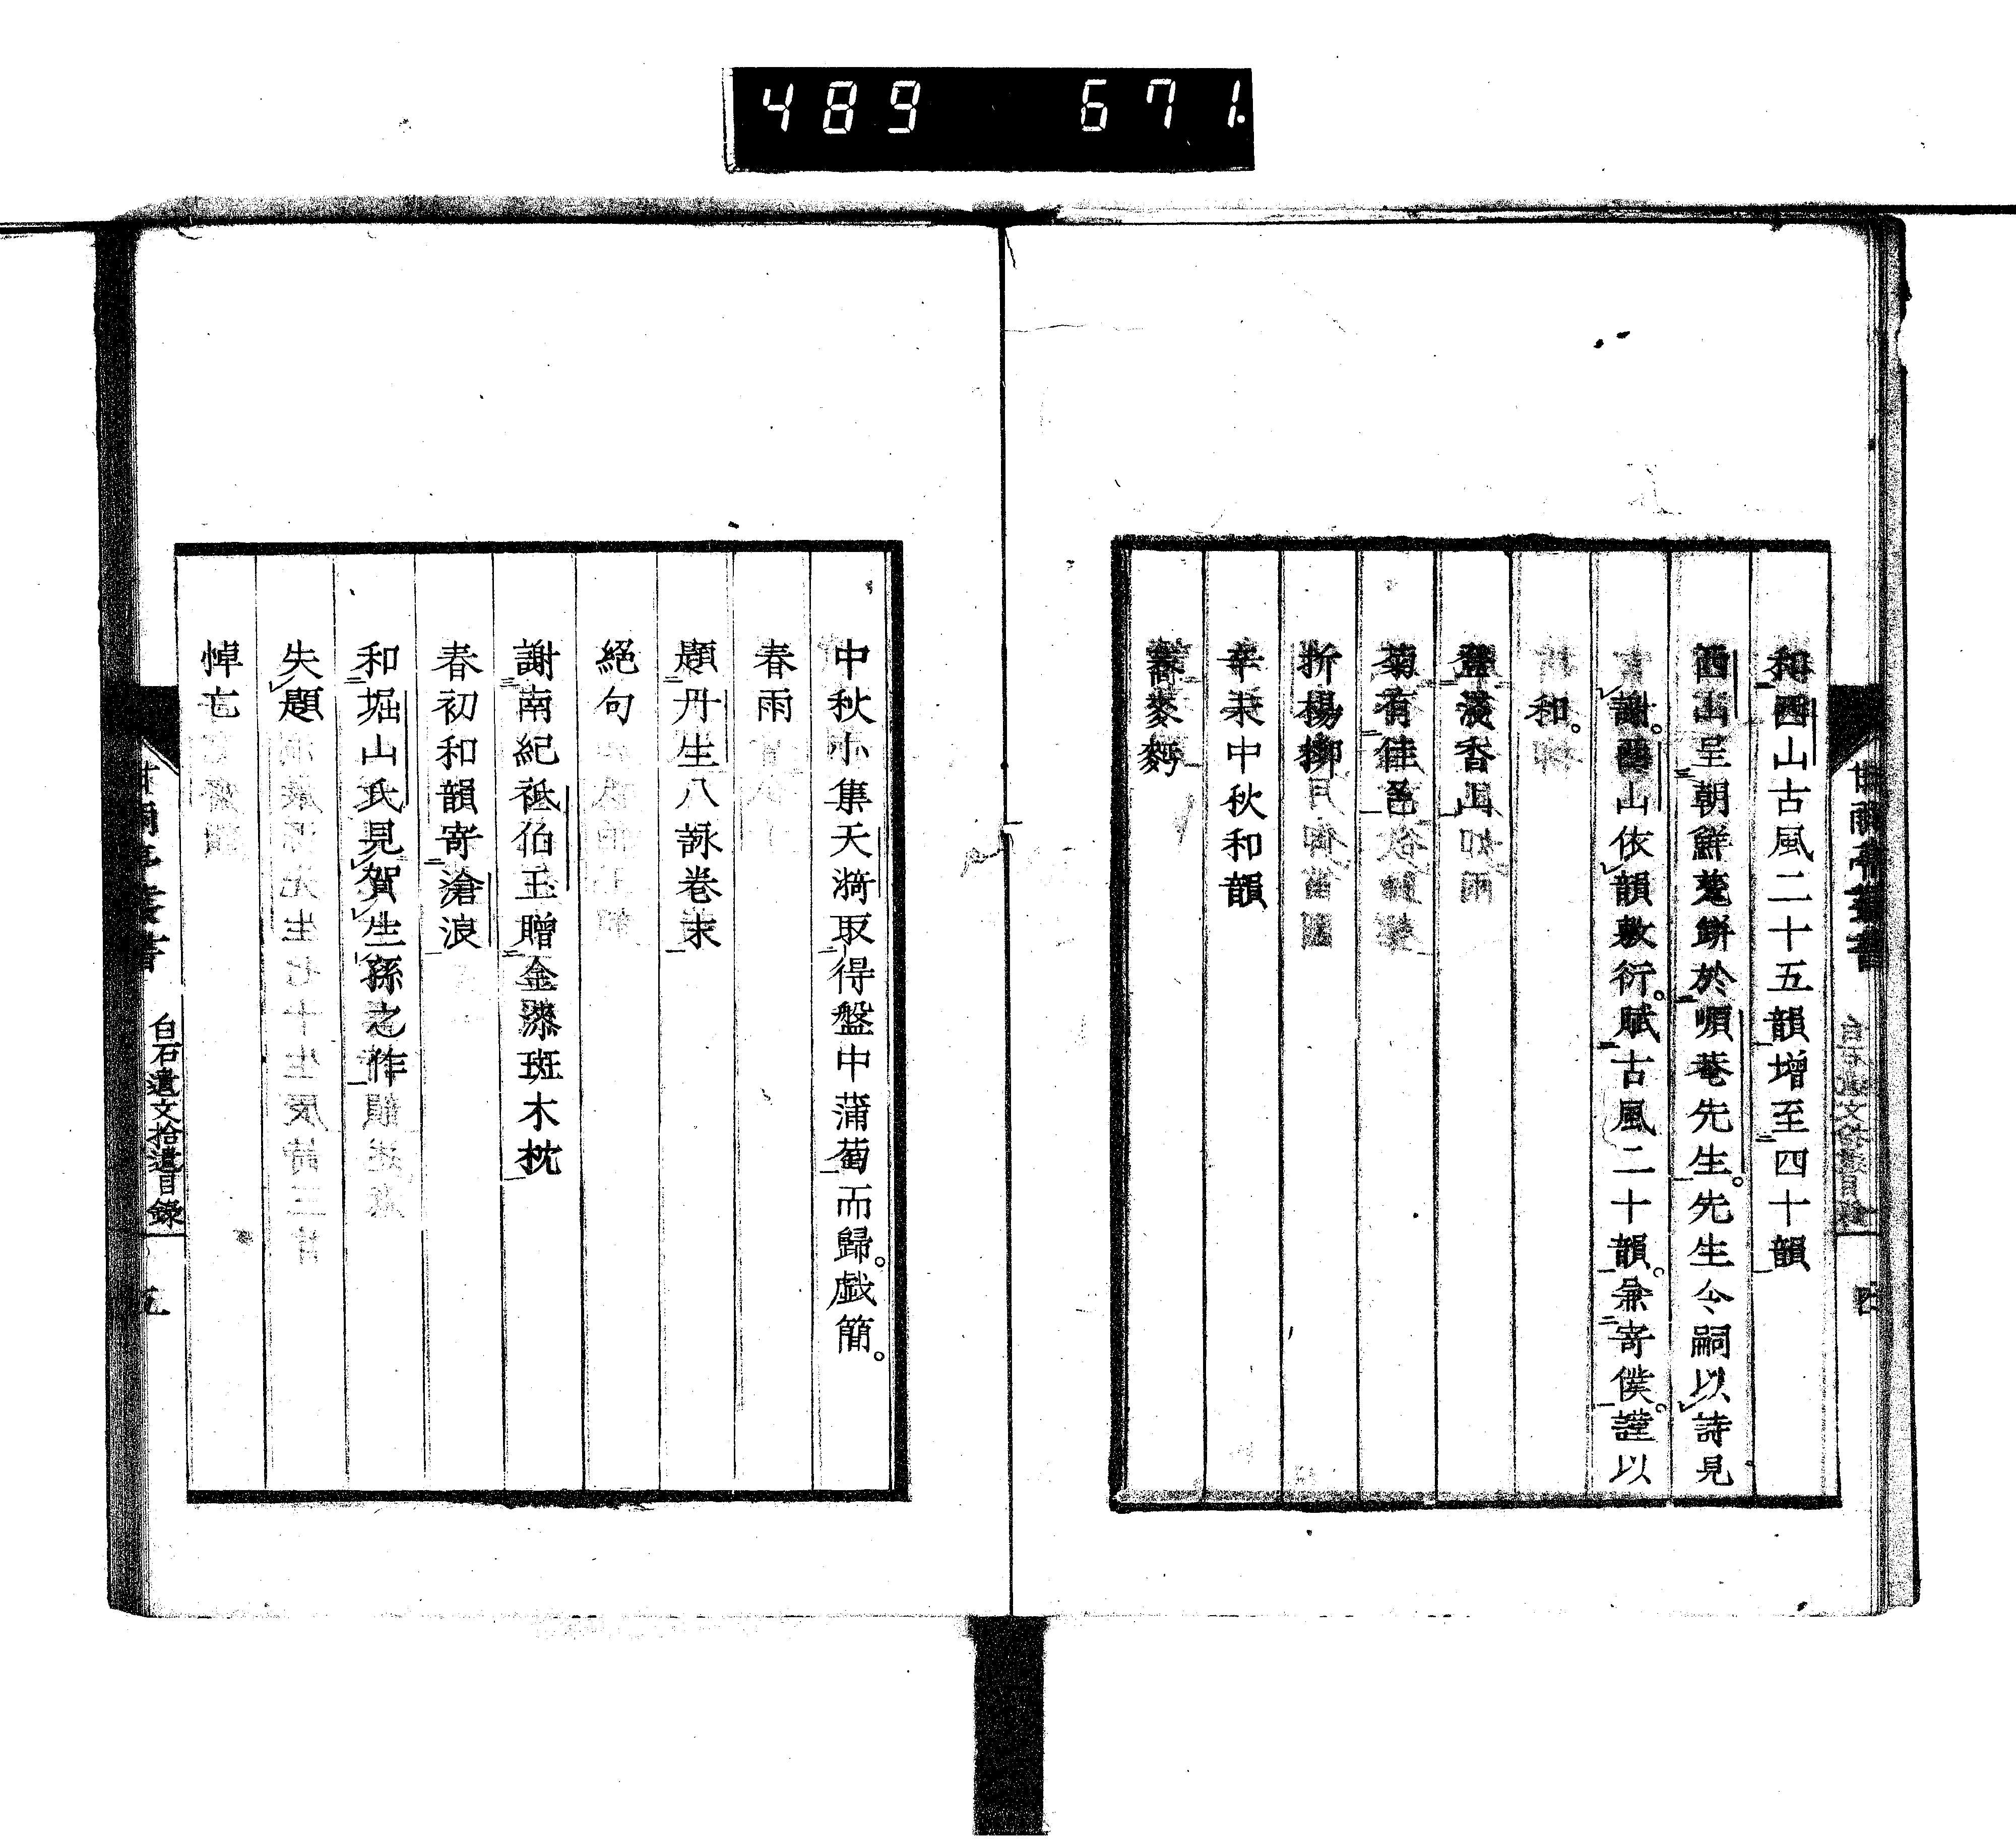 489 671.
和西山古風二十五韻増至四十韻
西山呈朝鮮菱餅於順菴先生。先生令嗣以詩見
謝。西山依韻敷衍。賦古風二十韻。兼寄僕。謹以
和。
登後香山
菊有佳色
折楊柳
辛未中秋和韻
蕎麥麪
中秋小集天漪取得盤中蒲萄而歸。戯簡。
春雨
題丹生八詠卷末
絕句
謝南紀祗伯玉贈金漆斑木枕
春初和韻寄滄浪
和堀山氏見賀生孫之作
失題
悼亡
白石遺文拾遺目錄
五